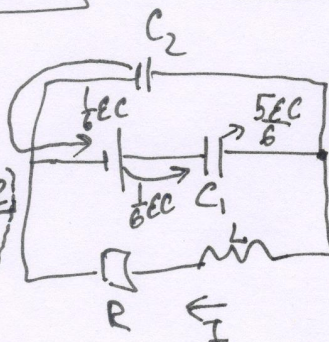 C₂
1/6 εC
5εC/6
1/6 εC
C₁
L
R
I